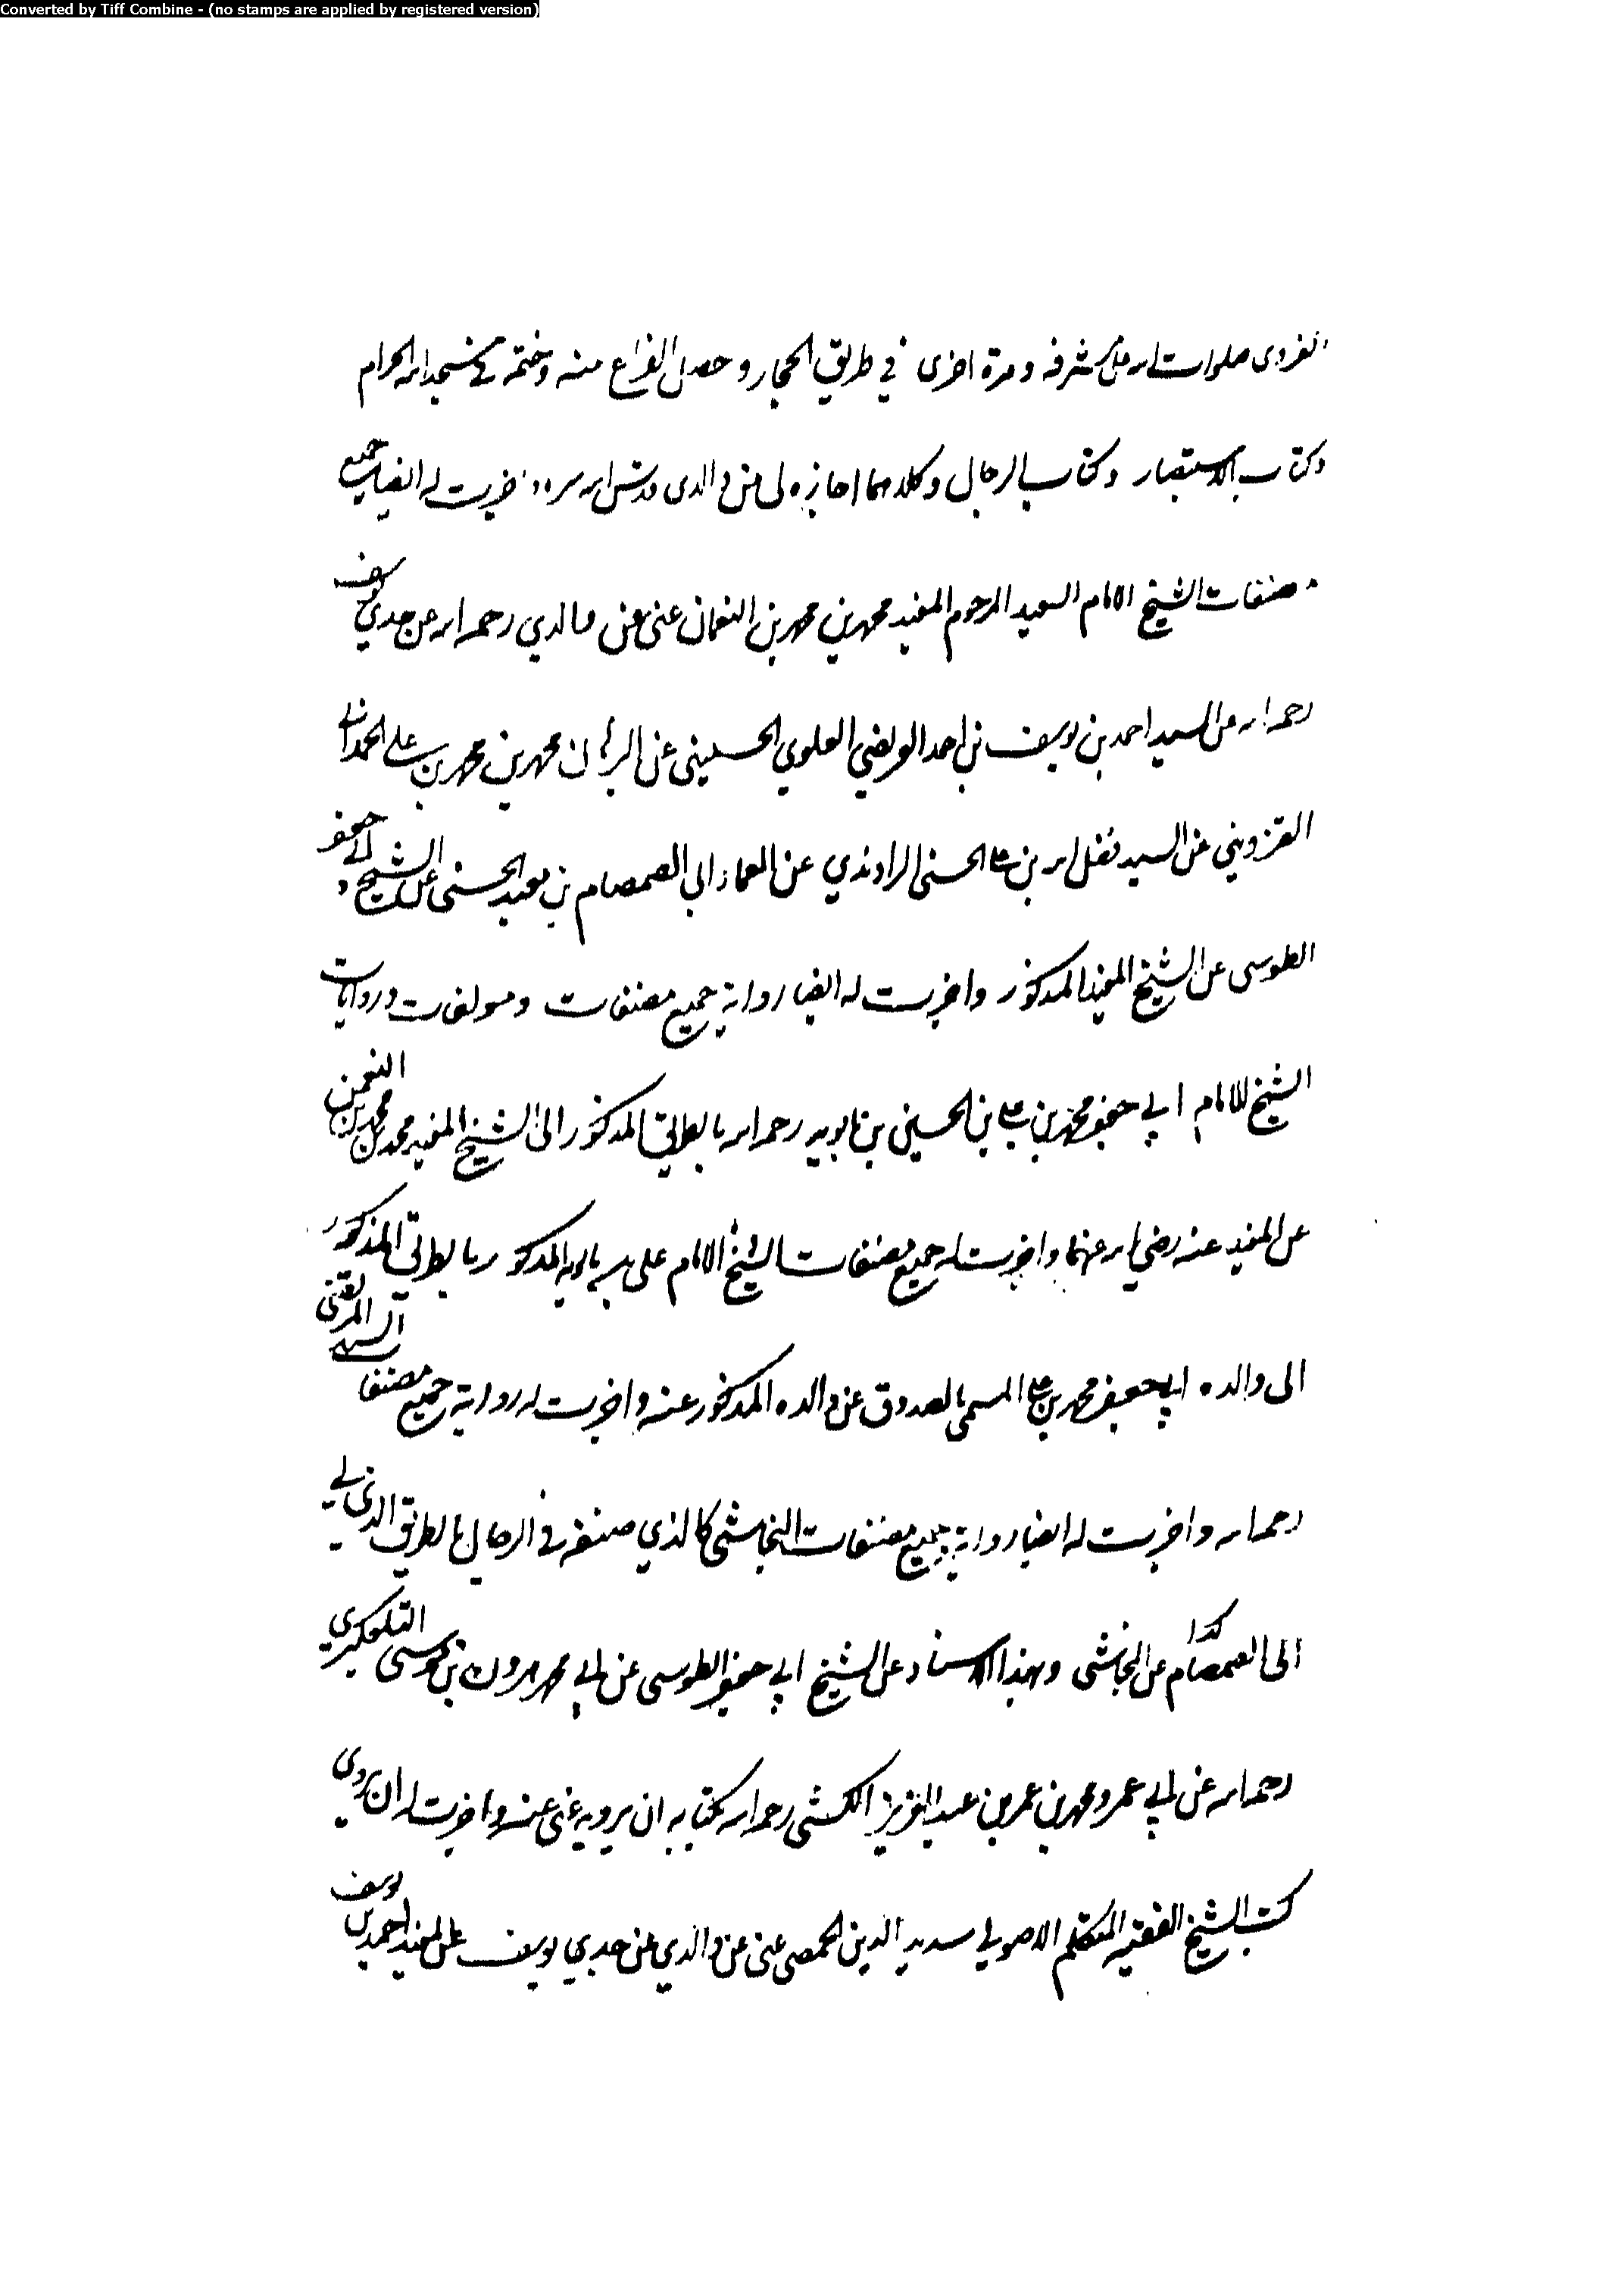 Converted by Tiff Combine - (no stamps are applied by registered version)
الغروى صلوات الله على مشرفه ومرة اخرى في طريق الحجاز وحصل الفراغ منه وختمه في مسجد الله الحرام
وكتاب الاستبصار وكتاب الرجال وكلاهما اجازة لى عن والدى قدس الله سره واجزت له ايضا جميع
مصنفات الشيخ الامام السعيد المرحوم المفيد محمد بن محمد بن النعمان عنى عن والدي رحمه الله عن جدي يوسف
رحمه الله عن السيد احمد بن يوسف بن احمد العريضي العلوي الحسيني عن البرهان محمد بن محمد بن علي الحمداني
القزويني عن السيد فضل الله بن على الحسنى الراوندي عن العماد ابي الصمصام بن معبد الحسنى عن الشيخ ابي جعفر
الطوسى عن الشيخ المفيد المذكور واجزت له ايضا رواية جميع مصنفات ومولفات وروايات
الشيخ الامام ابي جعفر محمد بن علي بن الحسين بن بابويه رحمه الله بالطريق المذكور الى الشيخ المفيد محمد بن محمد بن النعمن
عن المفيد عنه رضي الله عنهما واجزت له جميع مصنفات الشيخ الامام على بن بابويه المذكور بالطريق المذكور
الى والده ابي جعفر محمد بن على المسمى بالصدوق عن والده المذكور عنه واجزت له رواية جميع مصنفات السيد المرتضى
رحمه الله واجزت له ايضا رواية جميع مصنفات النجاشى كالذي صنفه في الرجال بالطريق الذي لي
الى الصمصام كذا عن النجاشى وبهذا الاسناد عن الشيخ ابي جعفر الطوسى عن ابي محمد هرون بن موسى التلعكبري
رحمه الله عن ابي عمرو محمد بن عمر بن عبد العزيز الكشى رحمه الله بكتابه ان يرويه عنى عنه واجزت له ان يروى
كتب الشيخ الفقيه المتكلم الاصولي سديد الدين الحمصى عنى عن والدي عن جدي يوسف عن السيد احمد بن يوسف